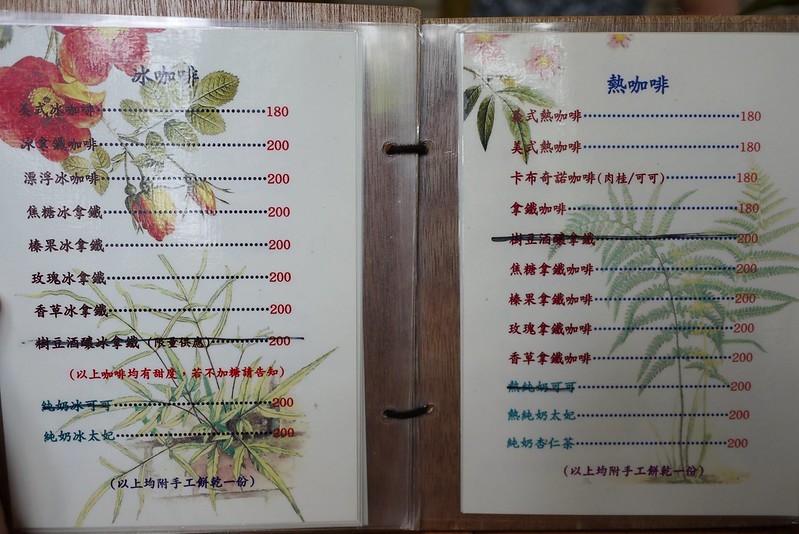 冰咖啡
美式冰咖啡 180
冰拿鐵咖啡 200
漂浮冰咖啡 200
焦糖冰拿鐵 200
榛果冰拿鐵 200
玫瑰冰拿鐵 200
香草冰拿鐵 200
樹豆酒釀冰拿鐵 (限量供應) 200
(以上咖啡均有甜度，若不加糖請告知)
純奶冰可可 200
純奶冰太妃 200
(以上均附手工餅乾一份)
熱咖啡
義式熱咖啡 180
美式熱咖啡 180
卡布奇諾咖啡(肉桂/可可) 180
拿鐵咖啡 180
樹豆酒釀拿鐵 200
焦糖拿鐵咖啡 200
榛果拿鐵咖啡 200
玫瑰拿鐵咖啡 200
香草拿鐵咖啡 200
熱純奶可可 200
熱純奶太妃 200
純奶杏仁茶 200
(以上均附手工餅乾一份)